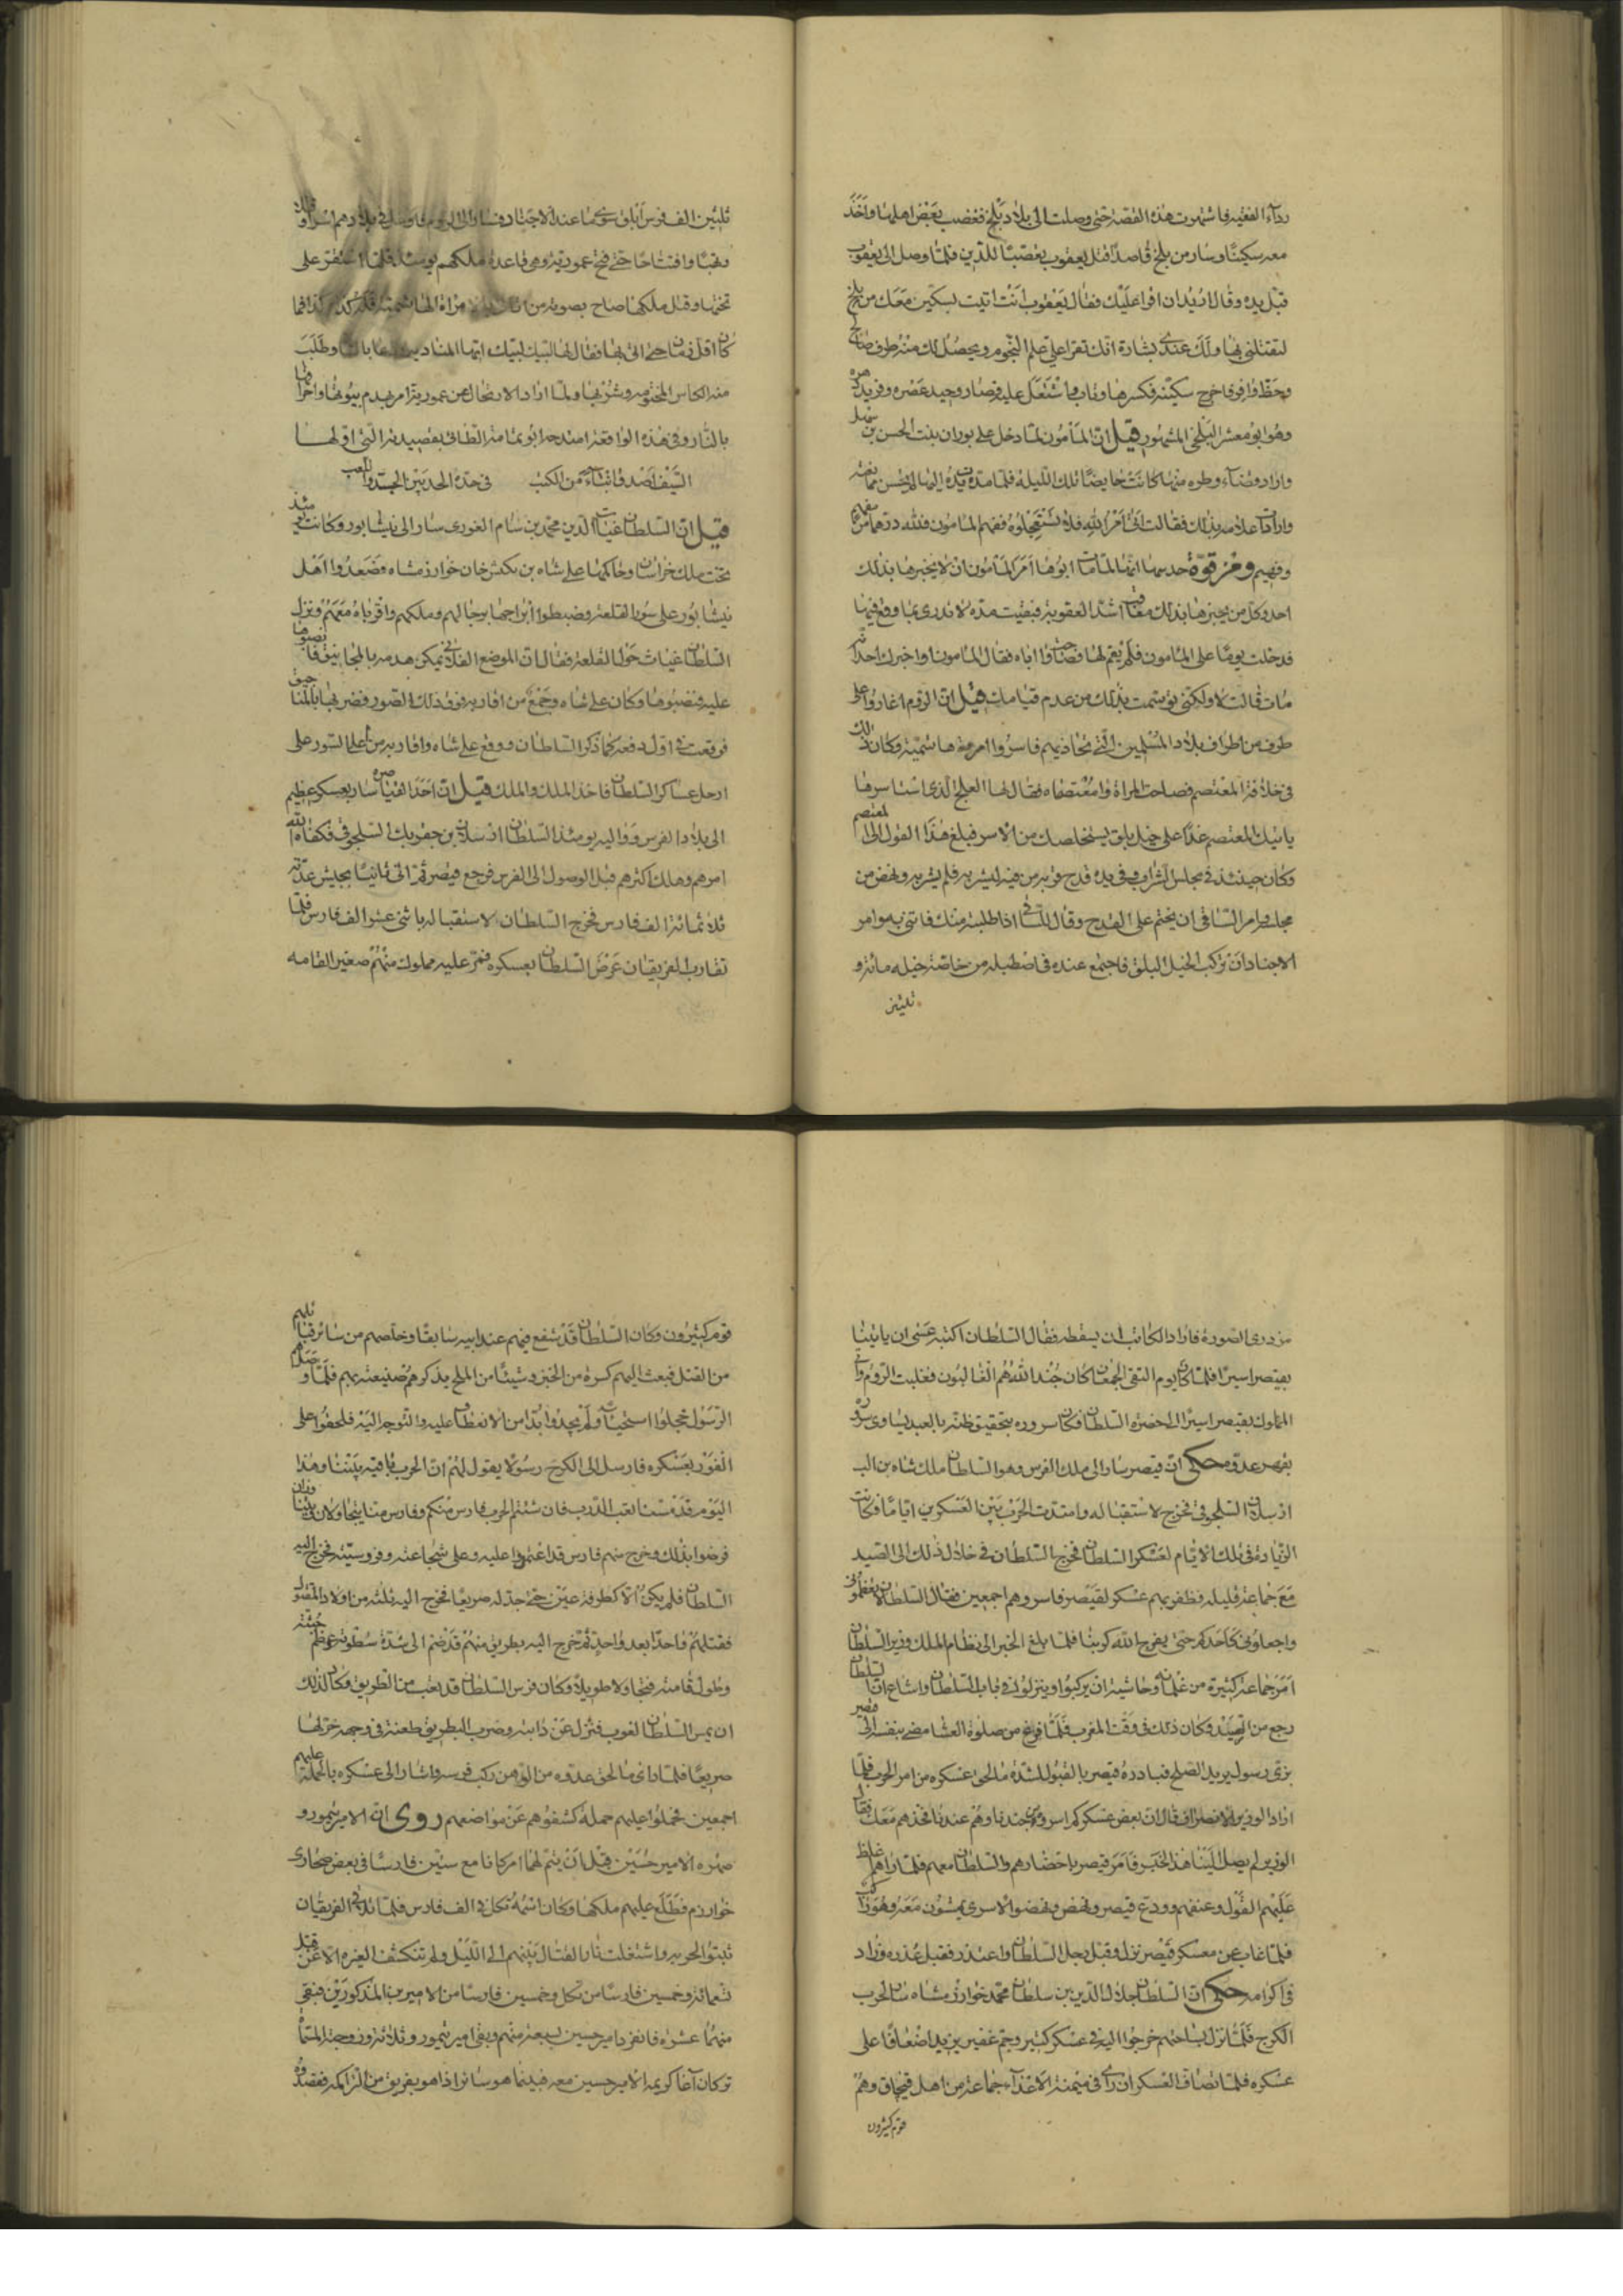 رداء الفقيه فاشتهرت هذه القصة حتى وصلت الى بلاد بلخ فغضب بعض اهلها واخذ
معه سكينا وسار من بلخ قاصدا قتل يعقوب تعصبا للدين فلما وصل الى يعقوب
قبل يده وقال اريد ان اقرا عليك فقال يعقوب انت اتيت بسكين معك من بلخ
لتقتلنى بها ولك عندى بشارة انك تقرا على علم النجوم ويحصل لك منه طرف صالح
وحظ وافر فاخرج سكينه فكسرها وتاب واشتغل عليه فصار وحيد عصره وفريد دهره
وهو ابو معشر البلخى المشهور قيل ان المأمون لما دخل على بوران بنت الحسن بن سهل
واراد قضاء وطره منها كانت حايضا تلك الليلة فلما مد يده اليها لم يحسن ممانعته
وارادت اعلامه بذلك فقالت اتى امر الله فلا تستعجلوه ففهم المامون فلله درها من
وفهيم ومن قوة حدسها انها لما مات ابوها امر المأمون ان لا يخبرها بذلك
احد وكل من يخبرها بذلك معاقب اشد العقوبة فبقيت مدة لا تدرى بما وقع فيها
فدخلت يوما على المامون فلم يقم لها فصاحت وا اباه فقال المامون اواخبرك احد انه
مات قالت لا ولكنى توسمت بذلك من عدم قيامك قيل ان الروم اغاروا على
طرف من اطراف بلاد المسلمين التى تحاذيهم فاسروا امرءة هاشمية وكان ذلك
فى خلافة المعتصم فصاحت المراة وا معتصماه فقال لها العلج الذى اسرها
ياتيك المعتصم غدا على خيل بلق يستخلصك من الاسر فبلغ هذا القول الى المعتصم
وكان حينئذ فى مجلس الشراب وفى يده قدح قربه من فيه ليشربه فلم يشربه ونهض من
مجلسه وامر الساقى ان يختم على القدح وقال للساقى اذا طلبته منك فاتنى به وامر
الاجناد ان تركب الخيل البلق فاجتمع عنده فى اصطبله من خاصة خيله مائة و
ثلثين
ثلثين الف فرس ابلق سوى ما عند الاجناد
ونهبا وافتتاحا حتى فتح عمورية وهى قاعدة ملكهم يومئذ فلما استقر على
تختها وقتل ملكها صاح بصوته من
كان اقل زمان حتى اتى بها فقال لها لبيك لبيك ايتها المنادية وطلب
منه الكاس المختومة وشربها ولما اراد الارتحال من عمورية امر بهدم بيوتها واحراقها
بالنار وفى هذه الواقعة امتدحه ابو تمام الطائى بقصيدته التى اولها
السيف اصدق انباء من الكتب فى حده الحد بين الجد واللعب
قيل ان السلطان غياث الدين محمد بن سام الغورى سار الى نيشابور وكانت يومئذ
تحت ملك خراسان وحاكمها على شاه بن تكش خان خوارزمشاه فصعدوا اهل
نيشابور على سور القلعة وضبطوا ابراجها برجالهم وملكهم واقرباه معهم ونزل
السلطان غياث حول القلعة فقال ان الموضع الفلانى يمكن هدمه بالمجانيق فانصبوها
عليه فنصبوها وكان على شاه وجمع من اقاربه فوق ذلك الصور فضربها بالمناجيق
فوقعت فى اول دفعة كما ذكر السلطان ووقع على شاه واقاربه من اعلى السور على
ارجل عساكر السلطان فاخذ الملك والملك قيل ان احد القياصره سار بعسكر عظيم
الى بلاد الفرس ووا اليه يومئذ السلطان ارسلان بن جغربك السلجوقى فكفاه الله
امرهم وهلك اكثرهم قبل الوصول الى الفرس فرجع قيصر ثم اتى ثانيا بجيش عدته
ثلاثمائة الف فارس فخرج السلطان لاستقباله باثنى عشر الف فارس فلما
تقارب الفريقان عرض السلطان بعسكره فمر عليه مملوك منهم صغير القامه
مزدرى الصورة فاراد الكاتب ان يسقطه فقال السلطان اكتبه عسى ان ياتينا
بقيصر اسيرا فلما كان يوم التقى الجمعان كان جند الله هم الغالبون فغلبت الروم واتى
المملوك بقيصر اسيرا الى حضرة السلطان فكان سروره بتحقيق ظنه بالعبد يساوى سروره
بقهر عدوه حكى ان قيصر سار الى ملك الفرس وهو السلطان ملك شاه بن الب
ارسلان السلجوقى فخرج لاستقباله وامتدت الحرب بين العسكرين اياما فكانت
الزيادة فى تلك الايام لعسكر السلطان فخرج السلطان فى خلال ذلك الى الصيد
مع جماعة قليلة فظفر بهم عسكر لقيصر فاسروهم اجمعين فقال السلطان لا تعظمونى
واجعلونى كاحدكم حتى يفرج الله كربنا فلما بلغ الخبر الى نظام الملك وزير السلطان
امر جماعة كثيرة من غلمانه وحاشيته ان يركبوا وينزلوا فى باب السلطان واشاع ان السلطان
رجع من الصيد وكان ذلك فى وقت المغرب فلما فرغ من صلوة العشا مضى بنفسه الى قيصر
بزى رسول يريد الصلح فبادره قيصر بالقبول لشدة ما لحق عسكره من امر الحرب فلما
اراد الوزير الانصراف قال ان بعض عسكركم اسروهم جندنا وهم عندنا فخذهم معك فقال
الوزير لم يصل الينا هذا الخبر فامر قيصر باحضارهم والسلطان معهم فلما راهم غلظ
عليهم القول وعنفهم وودع قيصر ونهض ونهضوا الاسرى يمشون معه وهو راكب
فلما غاب عن معسكر قيصر نزل وقبل رجل السلطان واعتذر فقبل عذره وزاد
فى اكرامه حكى ان السلطان جلال الدين بن سلطان محمد خوارزمشاه سار لحرب
الكرج فلما نزل بساحتهم خرجوا اليه فى عسكر كثير وجم غفير يزيد اضعافا على
عسكره فلما تصاف العسكران راى فى ميمنة الاعداء جماعة من اهل قبجاق وهم
قوم كثيرون
قوم كثيرون وكان السلطان قد شفع فيهم عند ابيه سابقا وخلصهم من سائر قبائلهم
من القتل فبعث اليهم كسرة من الخبز وشيئا من الملح يذكرهم صنيعته بهم فلما وصلهم
الرسول خجلوا استحياء ولم يجدوا بدا من الانعطاف عليه والتوجه اليه فلحقوا على
الفور بعسكره فارسل الى الكرج رسولا يقول لهم ان الحرب باقية بيننا وهذا
اليوم قد مسنا تعب الدرب فان شئتم الحرب فارس منكم وفارس منا يتجاولان
فرضوا بذلك وخرج منهم فارس قد اعتمدوا عليه وعلى شجاعته وفروسيته فخرج اليه
السلطان فلم يكن الا كطرفة عين حتى جدله صريعا فخرج اليه ثلثه من اولاد المقتول
فقتلهم واحدا بعد واحد ثم خرج اليه بطريق منهم قد ضم الى شدة سطوته عظم جثته
وطول قامته فتجاولا طويلا وكان فرس السلطان قد تعب من الطريق وكان لذلك
ان يمس السلطان لغوب فنزل عن دابته وضرب البطريق طعنة فى وجهه خر لها
صريعا فلما راى ما لحق عدوه من الوهن ركب فرسه واشار الى عسكره بالحملة عليهم
اجمعين فحملوا عليهم حملة كشفوهم عن مواضعهم روى ان الامير تيمور و
صهره الامير حسين قبل ان يتم لهما امر كانا مع ستين فارسا فى بعض صحارى
خوارزم فطلع عليهم ملكها وكان اسمه تكل فى الف فارس فلما تلاقى الفريقان
ثبتوا للحرب واشتعلت نار القتال بينهم الى الليل ولم تنكشف الغبره الا عن قتل
تسعمائة وخمسين فارسا من تكل وخمسين فارسا من الاميرين المذكورين فبقى
منهما عشرة فانفرد امير حسين بسبعة منهم وبقى امير تيمور وثلاثة وزوجته المسماة
تركان آغا كريمة الامير حسين معه فبينما هو سائر اذا هو بفريق من التراكمة فقصدوه